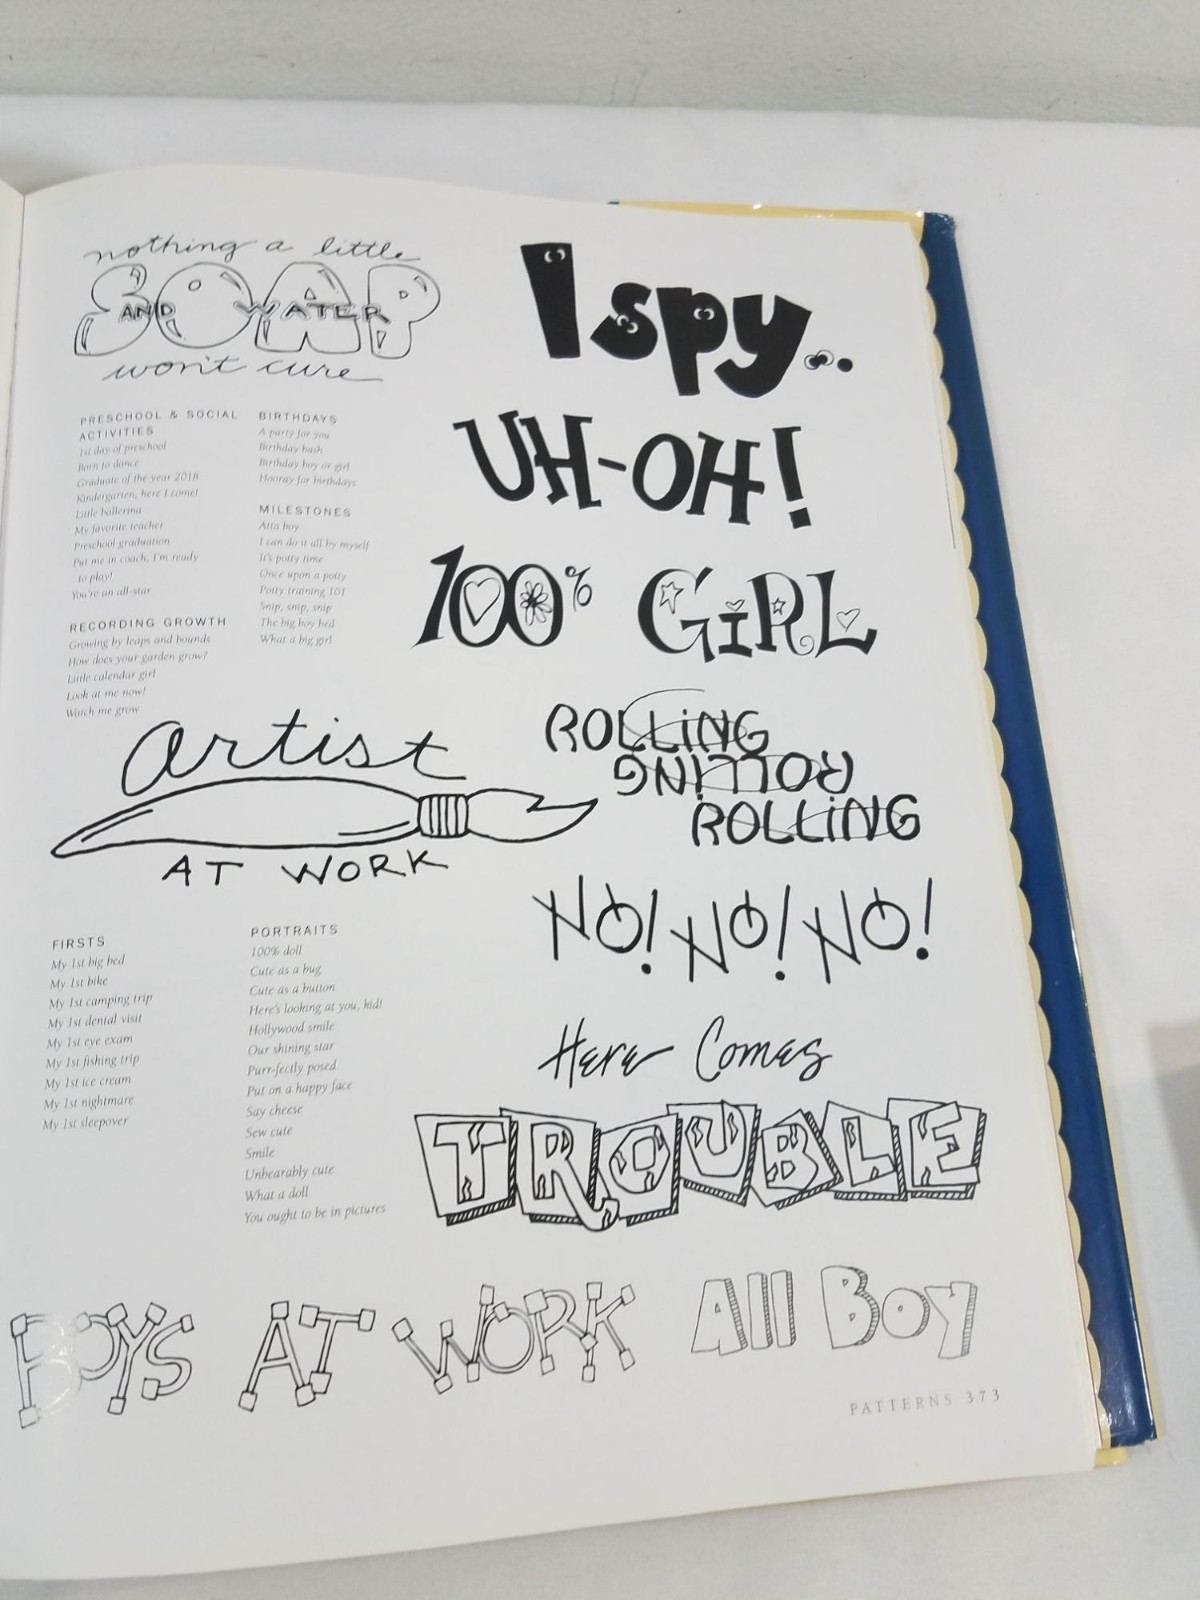 nothing a little
SOAP
AND WATER
won't cure
I spy...
PRESCHOOL & SOCIAL
ACTIVITIES
1st day of preschool
Born to dance
Graduate of the year 2018
Kindergarten, here I come!
Little ballerina
My favorite teacher
Preschool graduation
Put me in coach, I'm ready
to play!
You're an all-star
RECORDING GROWTH
Growing by leaps and bounds
How does your garden grow?
Little calendar girl
Look at me now!
Watch me grow
BIRTHDAYS
A party for you
Birthday bash
Birthday boy or girl
Hooray for birthdays
MILESTONES
Atta boy
I can do it all by myself
It's potty time
Once upon a potty
Potty training 101
Snip, snip, snip
The big boy bed
What a big girl
UH-OH!
100% GiRL
artist
AT WORK
ROLLiNG
ROLLING
ROLLiNG
NO! NO! NO!
FIRSTS
My 1st big bed
My 1st bike
My 1st camping trip
My 1st dental visit
My 1st eye exam
My 1st fishing trip
My 1st ice cream
My 1st nightmare
My 1st sleepover
PORTRAITS
100% doll
Cute as a bug
Cute as a button
Here's looking at you, kid!
Hollywood smile
Our shining star
Purr-fectly posed
Put on a happy face
Say cheese
Sew cute
Smile
Unbearably cute
What a doll
You ought to be in pictures
Here Comes
TROUBLE
BOYS AT WORK
All Boy
PATTERNS 373